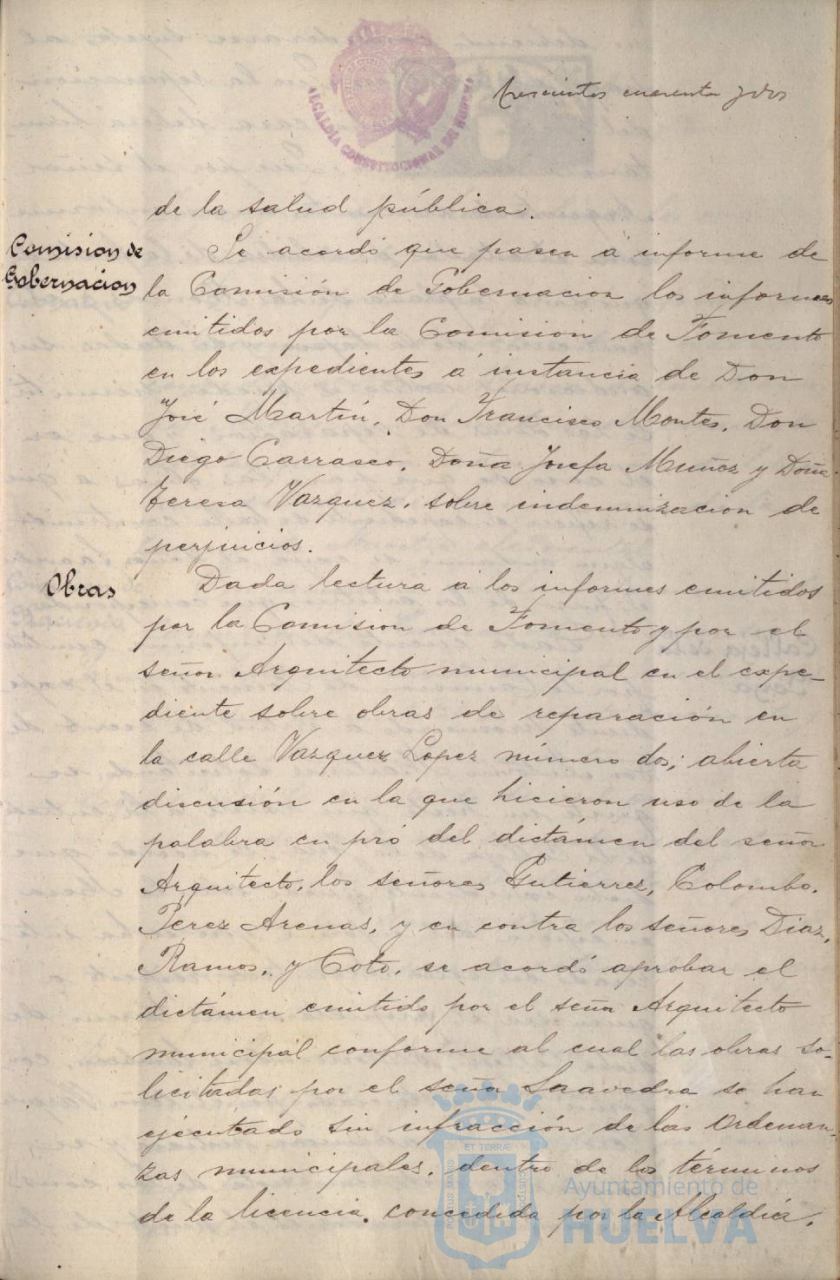 trescientos cuarenta y dos
ALCALDÍA CONSTITUCIONAL DE HUELVA
de la salud pública.
Comision de
Gobernacion
Se acordó que pasen á informe de
la Comisión de Gobernacion los informes
emitidos por la Comision de Fomento
en los expedientes á instancia de Don
José Martín, Don Francisco Montes, Don
Diego Carrasco, Doña Josefa Muñoz y Doña
Teresa Vazquez, sobre indemnizacion de
perjuicios.
Obras
Dada lectura á los informes emitidos
por la Comision de Fomento y por el
señor Arquitecto municipal en el expe-
diente sobre obras de reparación en
la calle Vazquez Lopez número dos; abierta
discusión en la que hicieron uso de la
palabra en pró del dictámen del señor
Arquitecto, los señores Gutierrez, Colombo,
Perez Arenas, y en contra los señores Diaz,
Ramos, y Coto, se acordó aprobar el
dictámen emitido por el señor Arquitecto
municipal conforme al cual las obras so-
licitadas por el señor Saavedra se han
ejecutado sin infracción de las Ordenan-
zas municipales, dentro de los términos
de la licencia concedida por la Alcaldía.
Ayuntamiento de
HUELVA